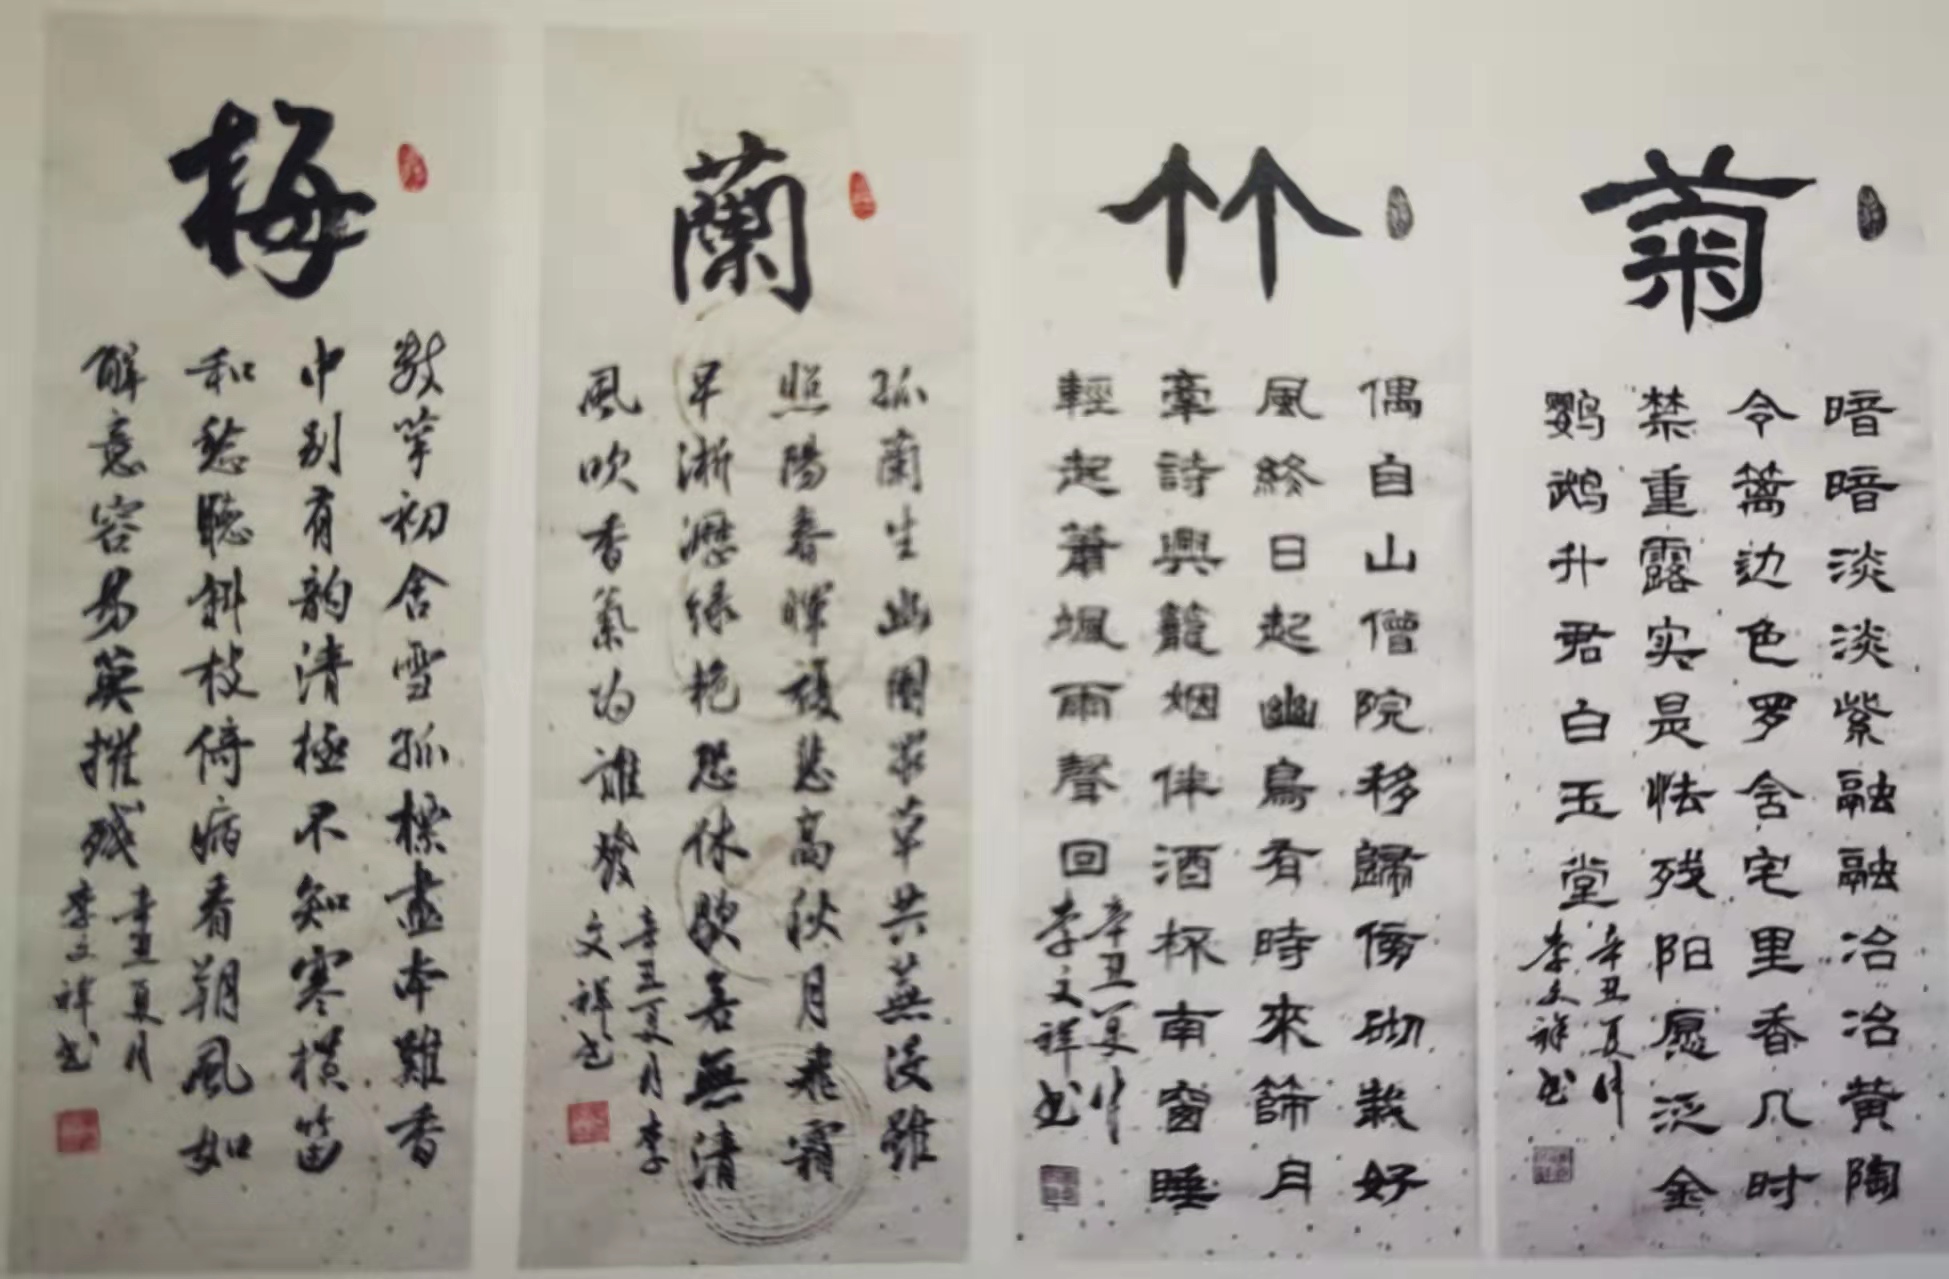 梅
数萼初含雪孤標畫本難香
中别有韵清極不知寒横笛
和愁聽斜枝倚病看朔風如
解意容易莫摧残
辛丑夏月
李文祥书
蘭
孤蘭生幽園眾草共蕪没雖
照陽春暉復悲高秋月飛霜
早淅瀝緑艳恐休歇若無清
風吹香氣為誰發
辛丑夏月李
文祥书
竹
偶自山僧院移歸傍砌栽好
風終日起幽鳥有時來篩月
牽詩興籠烟伴酒杯南窗睡
輕起蕭颯雨聲回
辛丑夏月
李文祥书
菊
暗暗淡淡紫融融冶冶黄陶
令篱边色罗含宅里香几时
禁重露实是怯残阳愿泛金
鹦鹉升君白玉堂
辛丑夏月
李文祥书